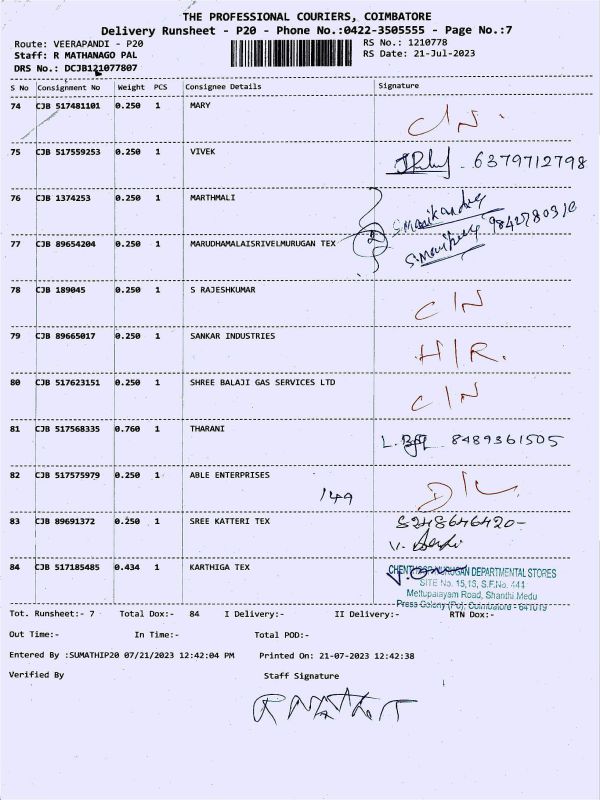 THE PROFESSIONAL COURIERS, COIMBATORE
Delivery Runsheet - P20 - Phone No.:0422-3505555 - Page No.:7
Route: VEERAPANDI - P20 RS No.: 1210778
Staff: R MATHANAGO PAL RS Date: 21-Jul-2023
DRS No.: DCJB121077807
S No Consignment No Weight PCS Consignee Details Signature
74 CJB 517481101 0.250 1 MARY C/N.
75 CJB 517559253 0.250 1 VIVEK 6379712798
76 CJB 1374253 0.250 1 MARTHMALI S.Manikandan
77 CJB 89654204 0.250 1 MARUDHAMALAISRIVELMURUGAN TEX 2
78 CJB 189045 0.250 1 S RAJESHKUMAR C/N
79 CJB 89665017 0.250 1 SANKAR INDUSTRIES H/R.
80 CJB 517623151 0.250 1 SHREE BALAJI GAS SERVICES LTD C/N
81 CJB 517568335 0.760 1 THARANI L. 8489361505
82 CJB 517575979 0.250 1 ABLE ENTERPRISES 149 D/L
83 CJB 89691372 0.250 1 SREE KATTERI TEX
84 CJB 517185485 0.434 1 KARTHIGA TEX
DEPARTMENTAL STORES
SITE No. 15,16, S.F.No. 444
Mettupalayam Road, Shanthi Medu
Press Colony (Po), Coimbatore - 641019
Tot. Runsheet:- 7 Total Dox:- 84 I Delivery:- II Delivery:- RTN Dox:-
Out Time:- In Time:- Total POD:-
Entered By :SUMATHIP20 07/21/2023 12:42:04 PM Printed On: 21-07-2023 12:42:38
Verified By Staff Signature